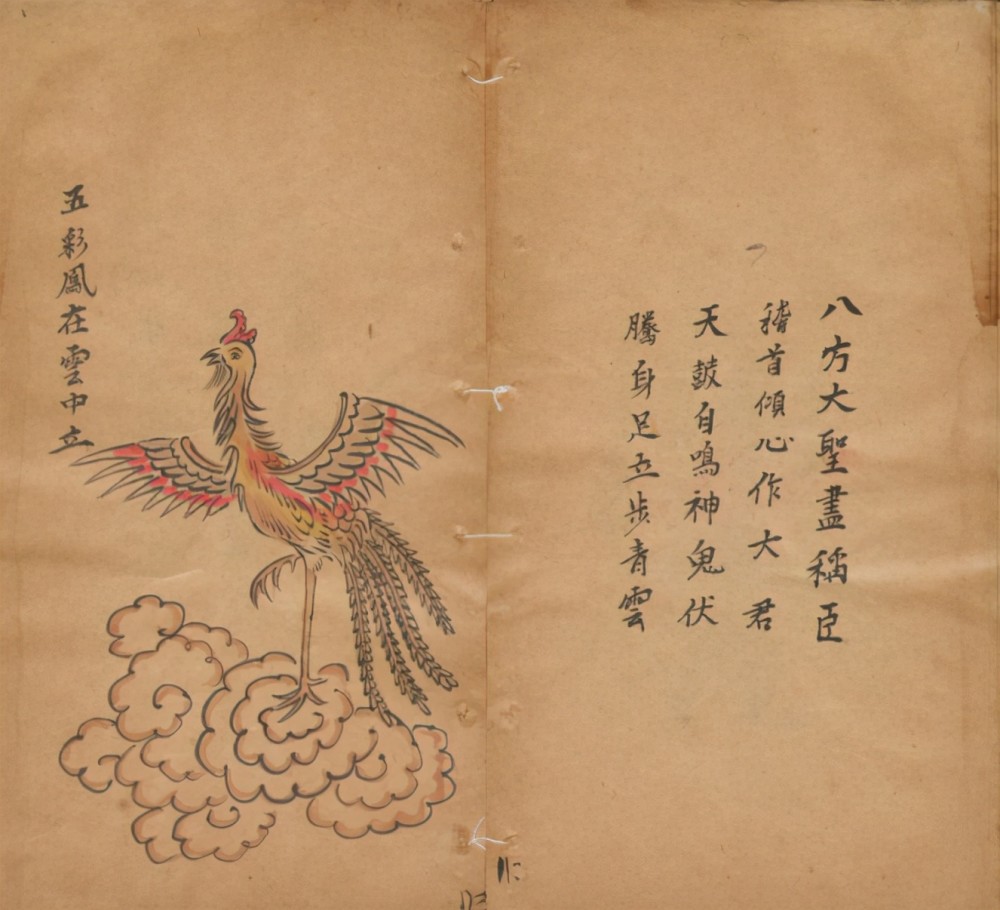 八方大聖盡稱臣
稽首傾心作大君
天鼓自鳴神鬼伏
騰身足立步青雲
五彩鳳在雲中立